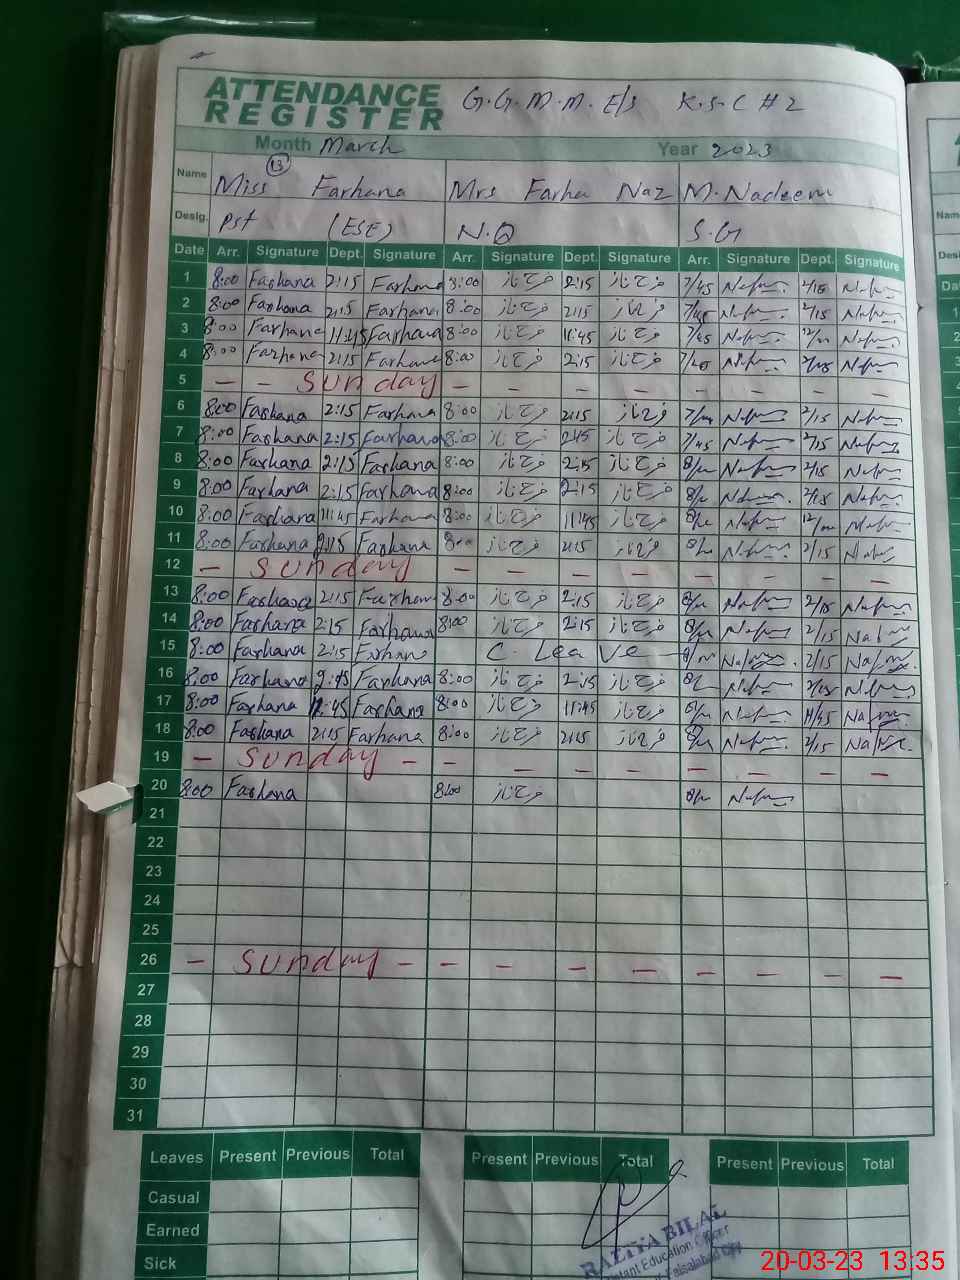 ATTENDANCE REGISTER G.G.M.M. E/S K.S.C #2
Month March Year 2023
Name Miss Farhana (13) Mrs Farha Naz M. Nadeem
Desig. PST (ESE) N.Q
Date Arr. Signature Dept. Signature Arr. Signature Dept. Signature Arr. Signature Dept. Signature
1 8:00 Farhana 2:15 Farhana 8:00 فرح ناز 2:15 فرح ناز 7/45 2/15
2 8:00 Farhana 2:15 Farhana 8:00 فرح ناز 2:15 فرح ناز 7/45 2/15
3 8:00 Farhana 11:45 Farhana 8:00 فرح ناز 11:45 فرح ناز 7/45
4 8:00 Farhana 2:15 Farhana 8:00 فرح ناز 2:15 فرح ناز
5 - - Sunday - - - - - - - -
6 8:00 Farhana 2:15 Farhana 8:00 فرح ناز 2:15 فرح ناز 2/15
7 8:00 Farhana 2:15 Farhana 8:00 فرح ناز 2:15 فرح ناز 7/45 2/15
8 8:00 Farhana 2:15 Farhana 8:00 فرح ناز 2:15 فرح ناز 2/15
9 8:00 Farhana 2:15 Farhana 8:00 فرح ناز 2:15 فرح ناز 2/15
10 8:00 Farhana 11:45 Farhana 8:00 فرح ناز 11:45 فرح ناز
11 8:00 Farhana 2:15 Farhana 8:00 فرح ناز 2:15 فرح ناز 2/15
12 - Sunday - - - - - - - -
13 8:00 Farhana 2:15 Farhana 8:00 فرح ناز 2:15 فرح ناز 2/15
14 8:00 Farhana 2:15 Farhana 8:00 فرح ناز 2:15 فرح ناز 2/15
15 8:00 Farhana 2:15 Farhana C. Leave 2/15
16 8:00 Farhana 2:15 Farhana 8:00 فرح ناز 2:15 فرح ناز
17 8:00 Farhana 12:45 Farhana 8:00 فرح ناز 11:45 فرح ناز 11/45
18 8:00 Farhana 2:15 Farhana 8:00 فرح ناز 2:15 فرح ناز 2/15
19 - Sunday - - - - - - - - -
20 8:00 Farhana 8:00 فرح ناز
21
22
23
24
25
26 - Sunday - - - - - - - - -
27
28
29
30
31
Leaves Present Previous Total Present Previous Total Present Previous Total
Casual
Earned
Sick
RAZIYA BILAL
Assistant Education Officer
Faisalabad City
20-03-23 13:35